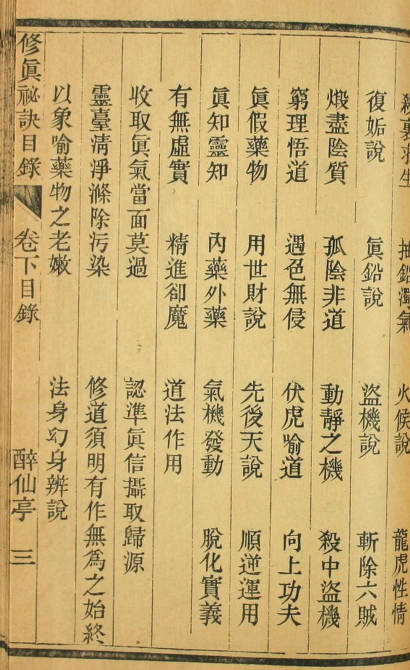 殺裏求生 抽鉛濁氣 火候說 龍虎性情
復姤說 眞鉛說 盜機說 斬除六賊
煅盡陰質 孤陰非道 動靜之機 殺中盜機
窮理悟道 遇色無侵 伏虎喻道 向上功夫
眞假藥物 用世財說 先後天說 順逆運用
眞知靈知 內藥外藥 氣機發動 脫化實義
有無虛實 精進卻魔 道法作用
收取眞氣當面莫過 認準眞信攝取歸源
靈臺清淨滌除污染 修道須明有作無爲之始終
以象喻藥物之老嫩 法身幻身辨說
修眞祕訣目錄 卷下目錄 醉仙亭 三